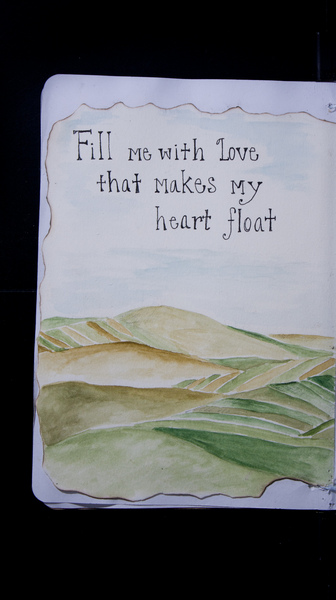 Fill me with Love
that makes my
heart float